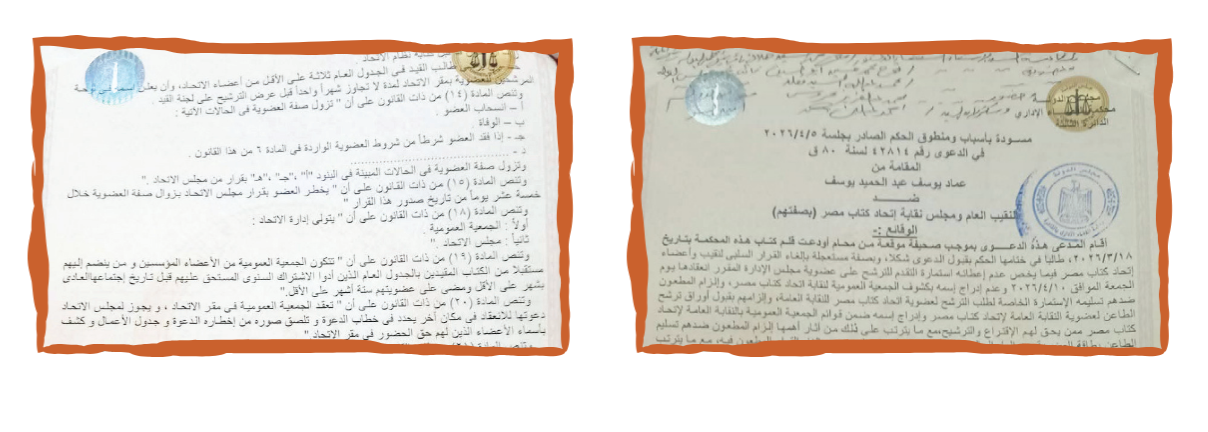 مجلس الدولة
الدائرة الثالثة
مسودة بأسباب ومنطوق الحكم الصادر بجلسة ٢٠٢٦/٤/٥
في الدعوى رقم ٤٢٨١٤ لسنة ٨٠ ق
المقامة من
عماد يوسف عبد الحميد يوسف
ضــــــد
النقيب العام ومجلس نقابة إتحاد كتاب مصر (بصفتهم)
الوقائع :-
أقام المدعى هذه الدعـــوى بموجب صحيفة موقعة من محام أودعت قلم كتاب هذه المحكمة بتاريخ
٢٠٢٦/٣/١٨، طالباً في ختامها الحكم بقبول الدعوى شكلا، وبصفة مستعجلة بإلغاء القرار السلبى لنقيب وأعضاء
إتحاد كتاب مصر فيما يخص عدم إعطائه استمارة التقدم للترشح على عضوية مجلس الإدارة المقرر انعقادها يوم
الجمعة الموافق ٢٠٢٦/٤/١٠ وعدم إدراج إسمه بكشوف الجمعية العمومية لنقابة اتحاد كتاب مصر، وإلزام المطعون
ضدهم تسليمه الإستمارة الخاصة لطلب الترشح لعضوية اتحاد كتاب مصر للنقابة العامة، وإلزامهم بقبول أوراق ترشح
الطاعن لعضوية النقابة العامة لإتحاد كتاب مصر وإدراج إسمه ضمن قوائم الجمعية العمومية بالنقابة العامة لإتحاد
كتاب مصر ممن يحق لهم الإقتراع والترشيح،مع ما يترتب على ذلك من أثار أهمها إلزام المطعون ضدهم تسليم
طالب القيد فى الجدول العام ثلاثة على الأقل من أعضاء الاتحاد، وأن يعلن
المرشحين للعضوية بمقر الاتحاد لمدة لا تجاوز شهراً واحداً قبل عرض الترشيح على لجنة القيد .
وتنص المادة (١٤) من ذات القانون على أن " تزول صفة العضوية فى الحالات الآتية :
أ – انسحاب العضو .
ب – الوفاة
جـ - إذا فقد العضو شرطاً من شروط العضوية الواردة فى المادة ٦ من هذا القانون .
د - ..........................................
وتزول صفة العضوية فى الحالات المبينة فى البنود "أ" ،"جـ" ،"هـ" بقرار من مجلس الاتحاد ."
وتنص المادة (١٥) من ذات القانون على أن " يخطر العضو بقرار مجلس الاتحاد بزوال صفة العضوية خلال
خمسة عشر يوماً من تاريخ صدور هذا القرار "
وتنص المادة (١٨) من ذات القانون على أن " يتولى إدارة الاتحاد :
أولاً : الجمعية العمومية
ثانياً : مجلس الاتحاد ."
وتنص المادة (١٩) من ذات القانون على أن " تتكون الجمعية العمومية من الأعضاء المؤسسين و من ينضم إليهم
مستقبلا من الكتاب المقيدين بالجدول العام الذين أدوا الاشتراك السنوى المستحق عليهم قبل تاريخ إجتماعهاالعادى
بشهر على الأقل ومضى على عضويتهم ستة أشهر على الأقل."
وتنص المادة (٢٠) من ذات القانون على أن " تعقد الجمعية العمومية فى مقر الاتحاد ، و يجوز لمجلس الاتحاد
دعوتها للانعقاد فى مكان آخر يحدد فى خطاب الدعوة و تلصق صوره من إخطاره الدعوة و جدول الأعمال و كشف
بأسماء الأعضاء الذين لهم حق الحضور فى مقر الاتحاد ."